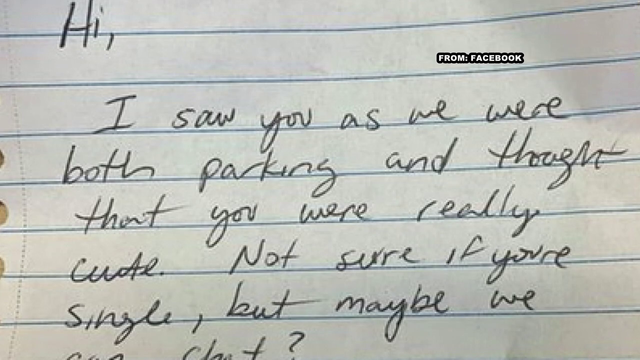 Hi,
FROM: FACEBOOK
I saw you as we were
both parking and thought
that you were really
cute. Not sure if you're
single, but maybe we
can chat?